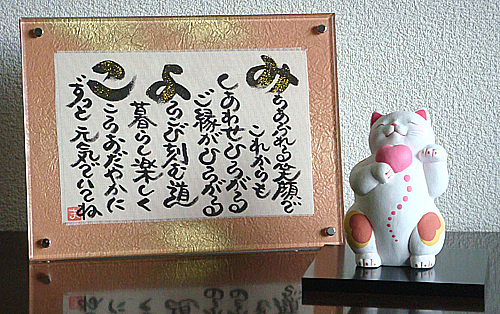 みちあふれる笑顔で
これからも
しあわせひろがる
ご縁がひろがる
よろこび刻む道
暮らし楽しく
こころおだやかに
ずっと元気でいてね